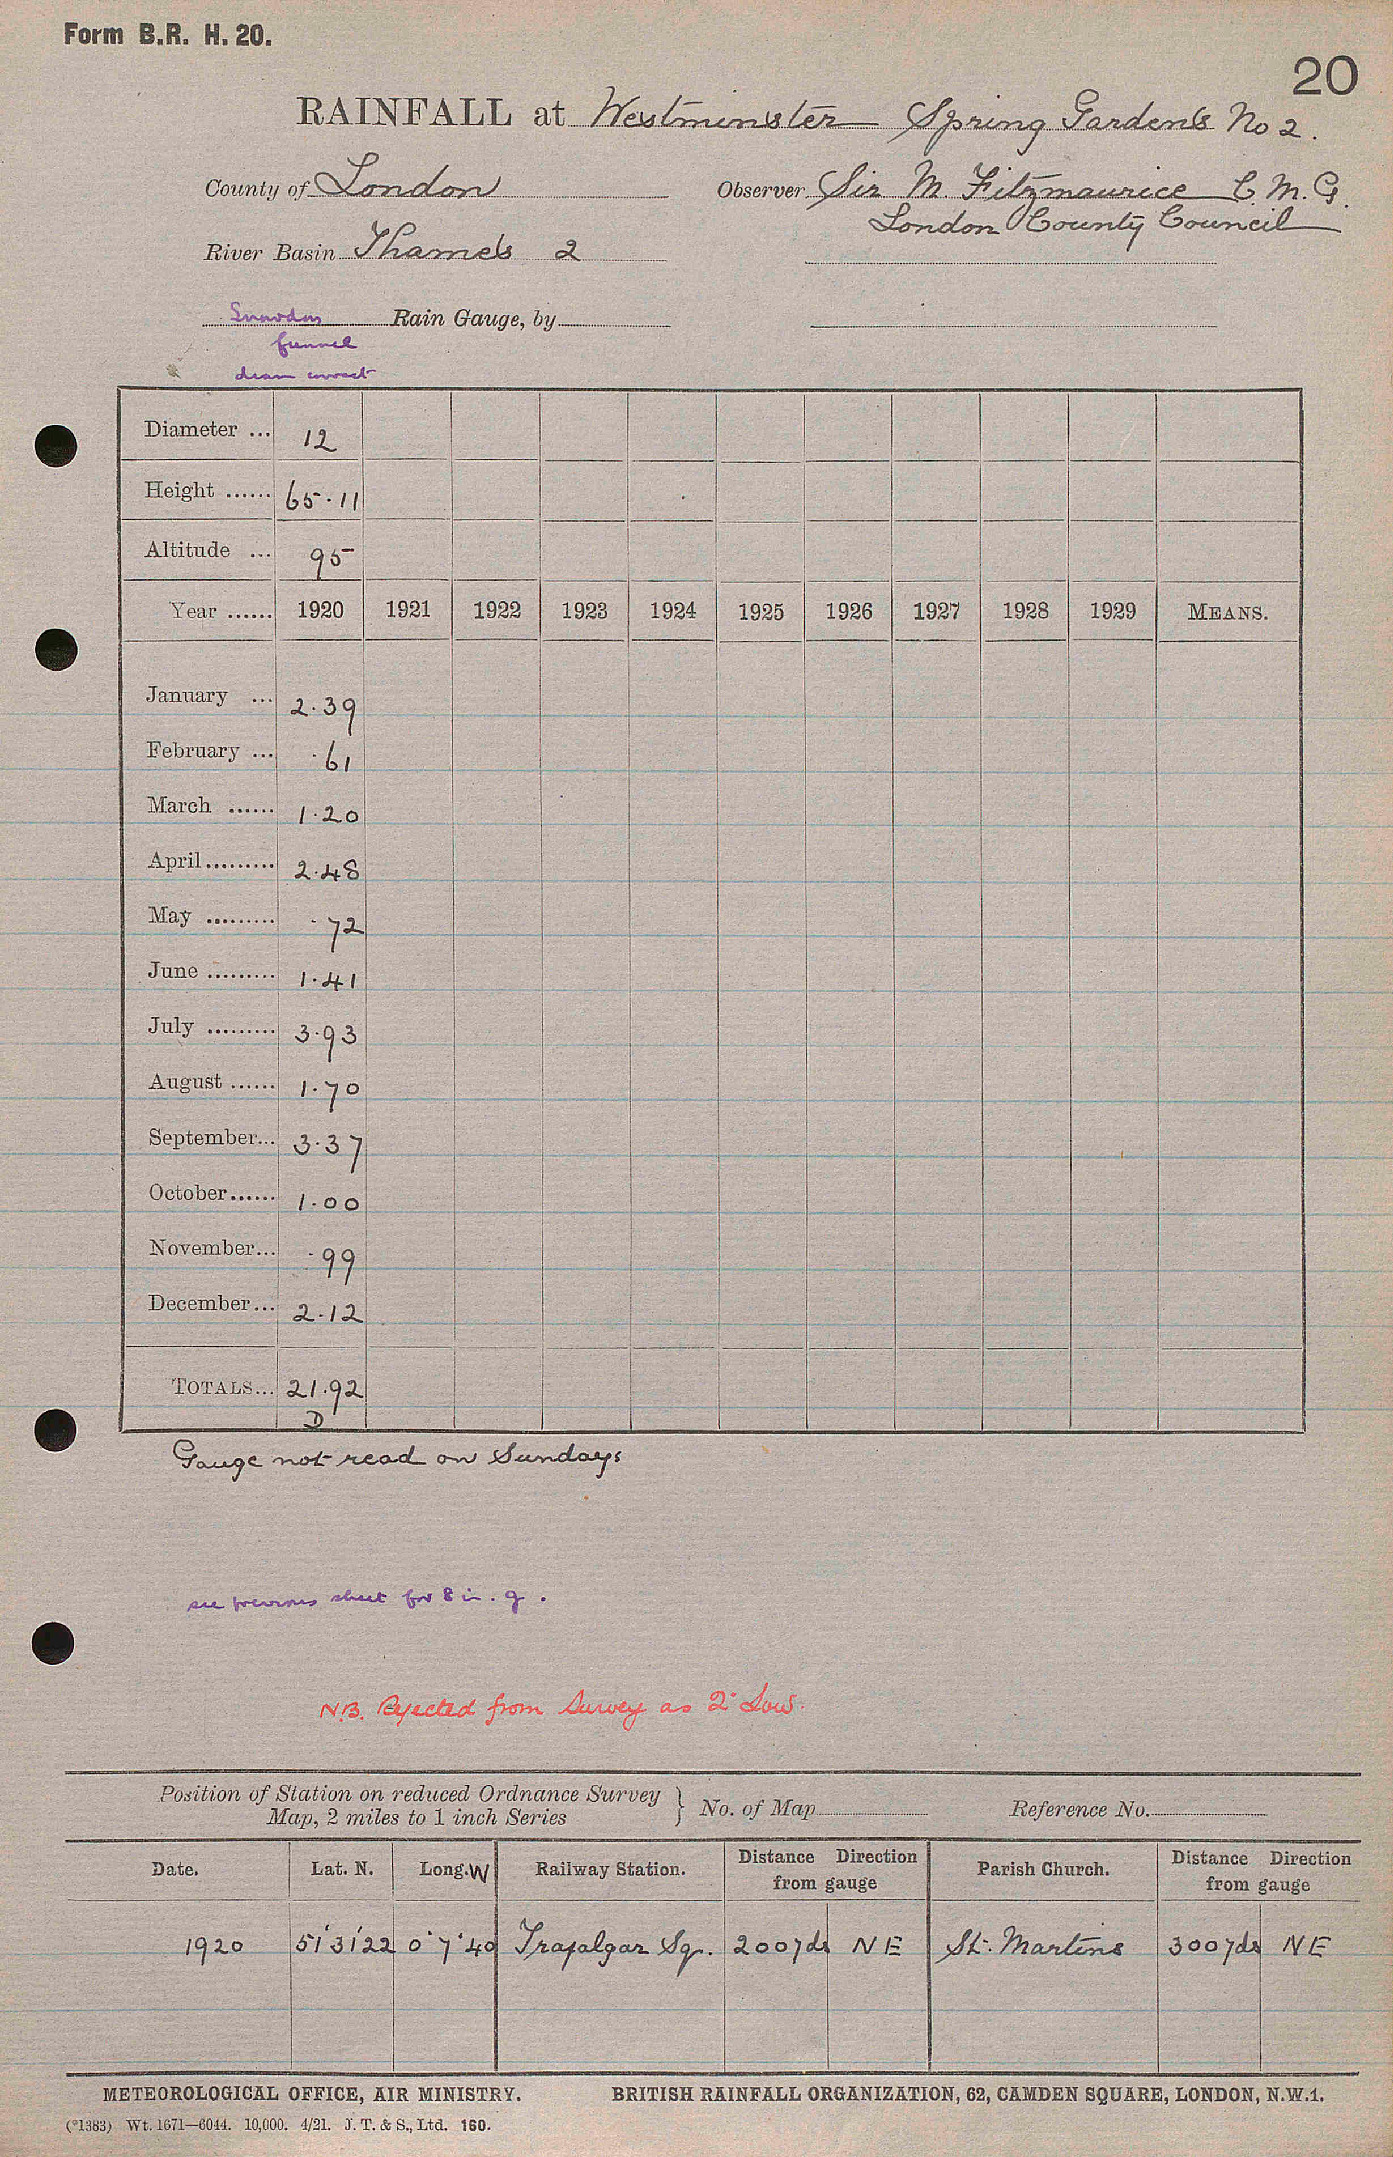 Form B.R. H. 20.
20
RAINFALL at Westminster Spring Gardens No 2.
County of London
Observer Sir M. Fitzmaurice C.M.G.
London County Council
River Basin Thames 2
Snowdon Rain Gauge, by
funnel
diam correct
Diameter ... 12
Height ...... 65.11
Altitude ... 95
Year ...... 1920 1921 1922 1923 1924 1925 1926 1927 1928 1929 MEANS.
January ... 2.39
February ... .61
March ...... 1.20
April ......... 2.48
May ......... .72
June ......... 1.41
July ......... 3.93
August ...... 1.70
September... 3.37
October ...... 1.00
November... .99
December... 2.12
TOTALS... 21.92
D
Gauge not read on Sundays
see previous sheet for 8 in. g.
N.B. Rejected from Survey as 2" Low.
Position of Station on reduced Ordnance Survey
Map, 2 miles to 1 inch Series } No. of Map Reference No.
Date. Lat. N. Long. W Railway Station. Distance Direction from gauge Parish Church. Distance Direction from gauge
1920 51°31'22 0°7'40 Trafalgar Sq. 200 yds NE St. Martins 300 yds NE
METEOROLOGICAL OFFICE, AIR MINISTRY. BRITISH RAINFALL ORGANIZATION, 62, CAMDEN SQUARE, LONDON, N.W.1.
(*1383) Wt. 1671—6044. 10,000. 4/21. J. T. & S., Ltd. 160.